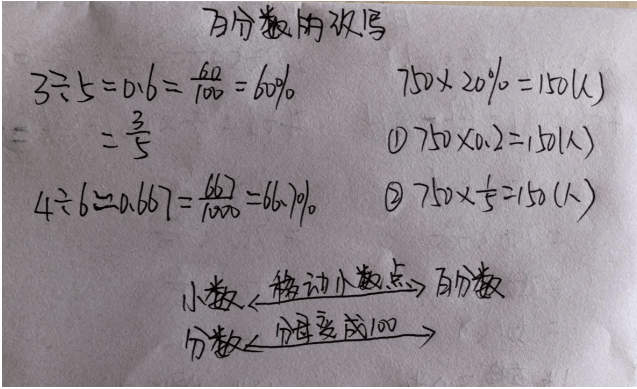 百分数的改写
3÷5=0.6=60/100=60%
=3/5
4÷6≈0.667=667/1000=66.7%
750×20%=150(人)
①750×0.2=150(人)
②750×1/5=150(人)
小数 ←移动小数点→ 百分数
分数 ←分母变成100→